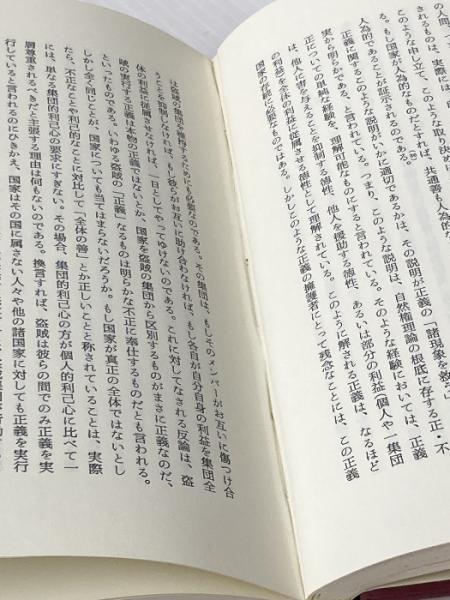 の人間、
されるものは、実際には、
このような申し立て、このような取り決め
もし国家が人為的なものだとすれば、共通善も人為的な
人為的であることが証示されるのである。
正義に関するこのような説明がいかに適切であるかは、その説明が正義の「諸現象を救う」
実から明らかである、と言われている。つまり、このような説明は、自然権理論の根底に存する正・不
正についての単純な経験を、理解可能なものにすると言われている。そのような経験においては、正義
は、他人に害を与えることを抑制する徳性、他人を援助する徳性、あるいは部分の利益(個人や一集団
の利益)を全体の利益に従属させる徳性として理解されている。このように解される正義は、なるほど
国家の存続に必要なものではある。しかしこのような正義の擁護者にとって残念なことには、この正義
は盗賊の集団が維持するためにも必要なのである。その集団は、もしそのメンバーがお互いに傷つけ合
うことを抑制しなければ、もし彼らがお互いに助け合わなければ、もし各自が自分自身の利益を集団全
体の利益に従属させなければ、一日としてやってけないのである。これに対してなされる反論は、盗
賊の実行する正義は本物の正義ではないとか、国家を盗賊の集団から区別するものがまさに正義なのだ、
といったものである。いわゆる盗賊の「正義」なるものは明らかな不正に奉仕するものだとも言われる。
しかし全く同じことが、国家についても当てはまらないだろうか。もし国家が真正の全体ではないとし
たら、不正なことや利己的なことに対比して「全体の善」とか正しいことと称されていることは、実際
には、単なる集団的利己心の要求にすぎない。その場合、集団的利己心の方が個人的利己心に比べて一
層尊重されるべきだと主張する理由は何もないのである。換言すれば、盗賊は彼らの間でのみ正義を実
行していると言われるのにひきかえ、国家はその国に属さない人々や他の諸国家に対しても正義を実行